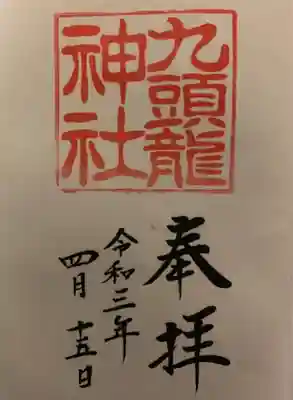 九頭龍
神社
奉拝
令和三年
四月十五日